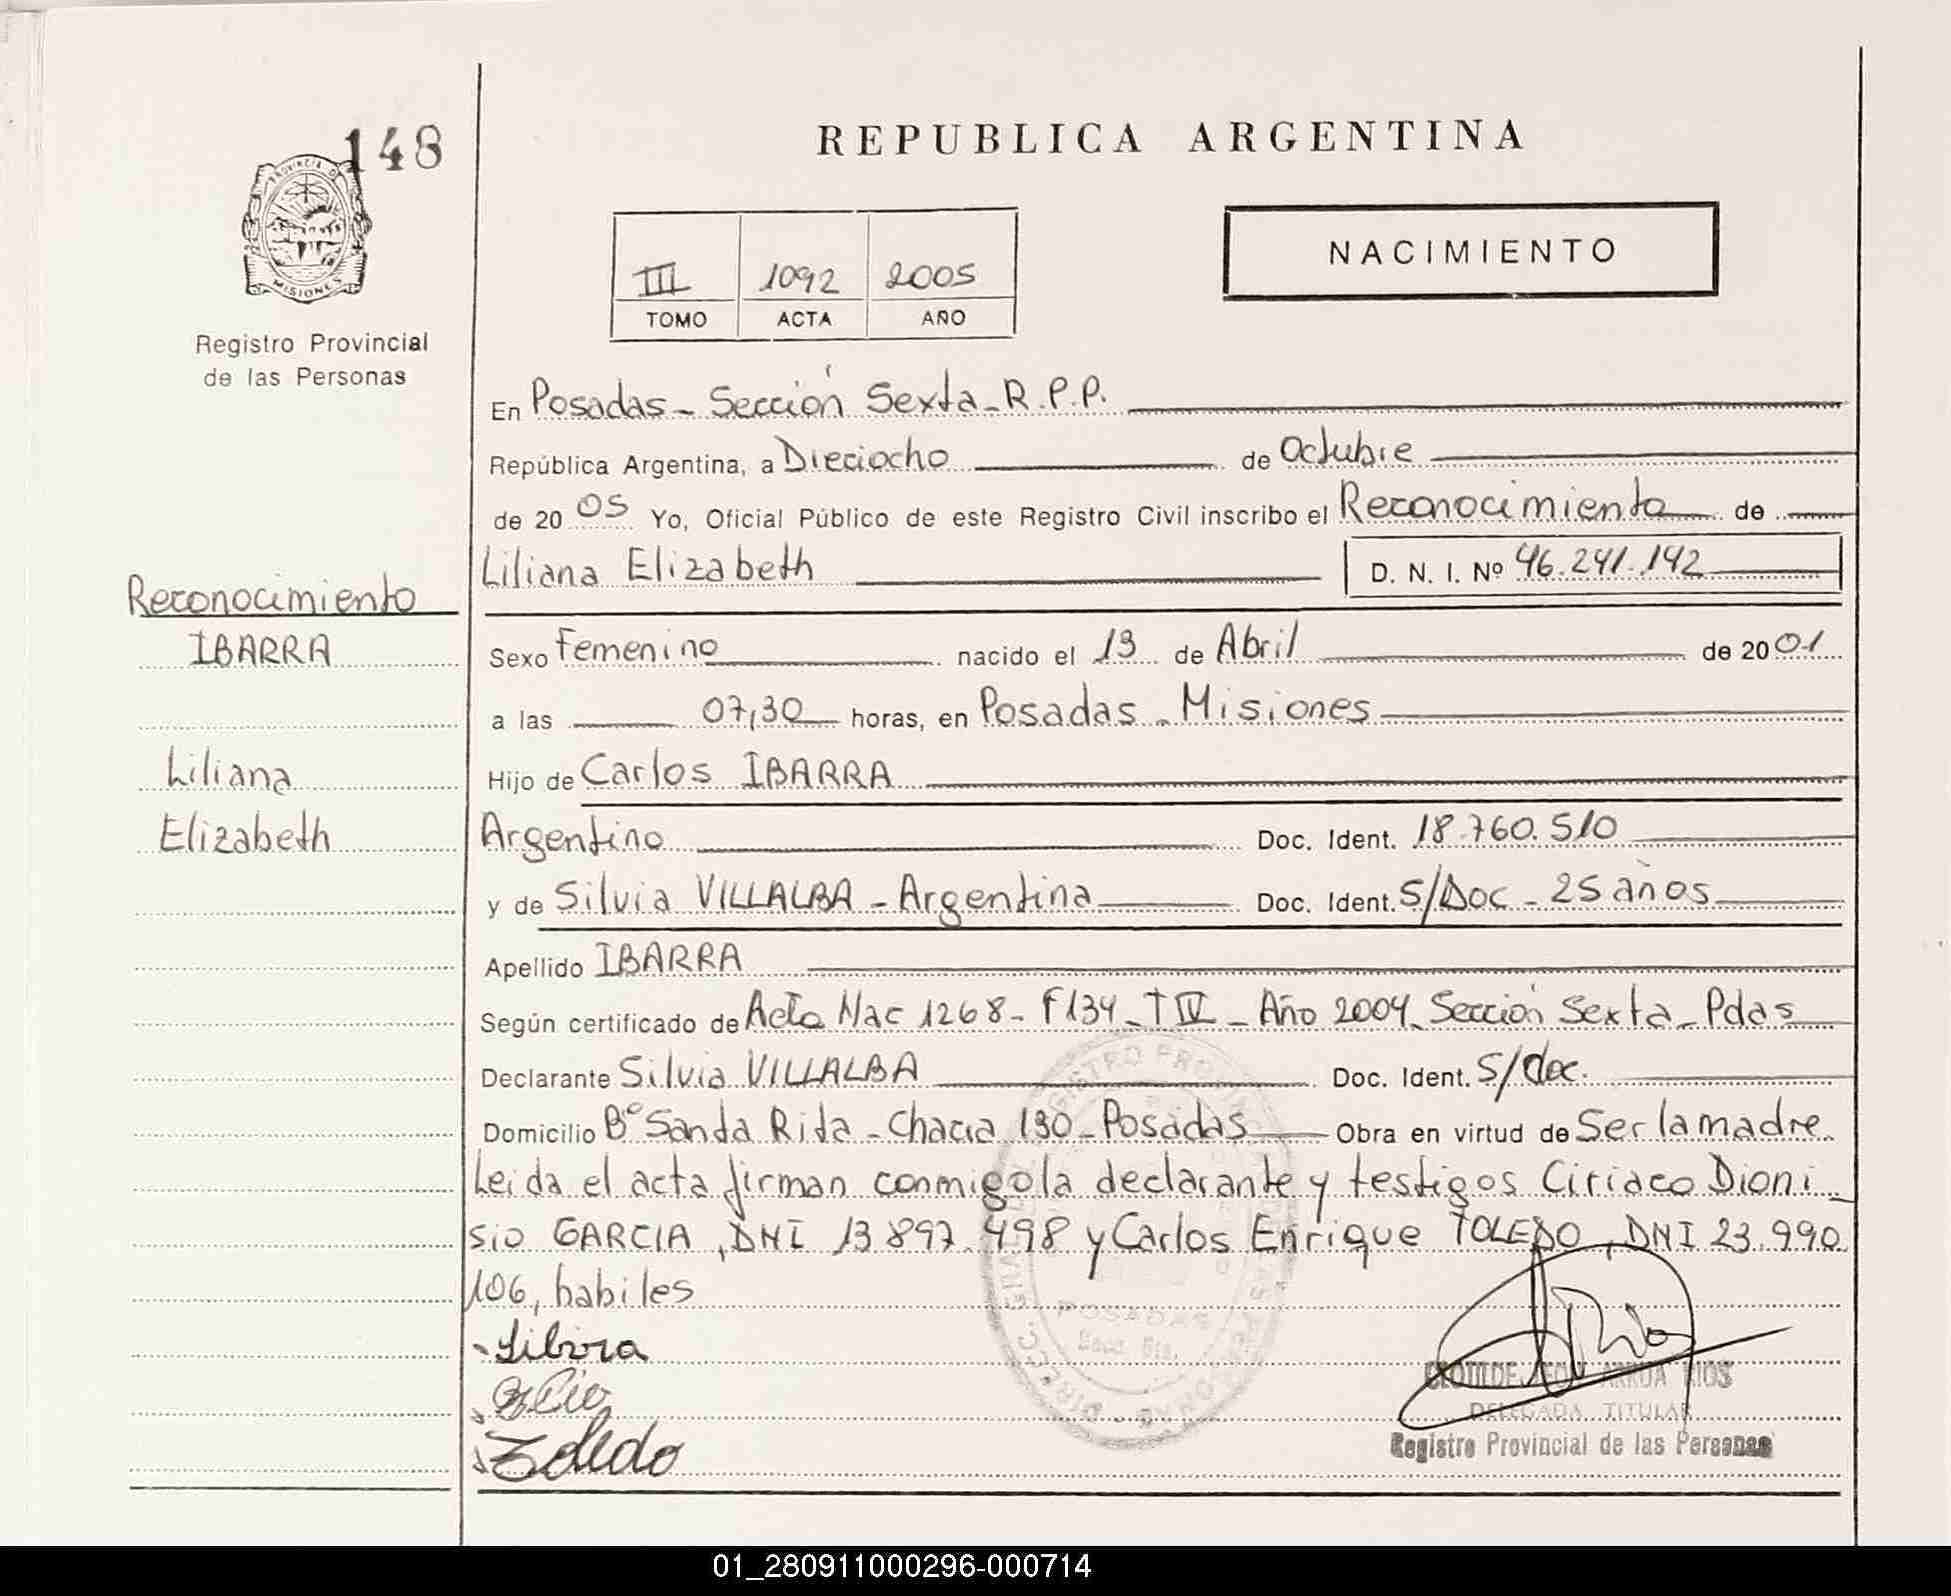 148
PROVINCIA DE
MISIONES
Registro Provincial
de las Personas
REPUBLICA ARGENTINA
NACIMIENTO
III 1092 2005
TOMO ACTA AÑO
En Posadas - Sección Sexta - R.P.P.
República Argentina, a Dieciocho de Octubre
de 20 05 Yo, Oficial Público de este Registro Civil inscribo el Reconocimiento de
Liliana Elizabeth D. N. I. Nº 46.241.142
Reconocimiento
IBARRA
Liliana
Elizabeth
Sexo Femenino nacido el 13 de Abril de 20 01
a las 07,30 horas, en Posadas - Misiones
Hijo de Carlos IBARRA
Argentino Doc. Ident. 18.760.510
y de Silvia VILLALBA - Argentina Doc. Ident. S/Doc - 25 años
Apellido IBARRA
Según certificado de Acta Nac 1268 - F134 - T IV - Año 2004 - Sección Sexta - Pdas
Declarante Silvia VILLALBA Doc. Ident. S/doc.
Domicilio Bº Santa Rita - Chacra 130 - Posadas Obra en virtud de Ser la madre
Leida el acta firman conmigo la declarante y testigos Ciriaco Dioni
sio GARCIA, DNI 13.897.498 y Carlos Enrique TOLEDO, DNI 23.990
106, habiles
POSADAS
Secc. 6ta.
Toledo
RIOS
DELEGADA TITULAR
Registro Provincial de las Personas
01_280911000296-000714